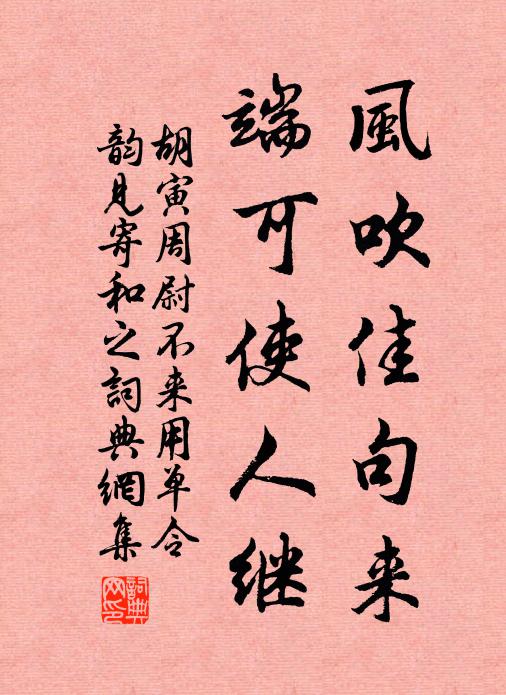 風吹佳句来
端可使人继
胡寅周尉不来用单令
韵见寄和之詞典網集
詞典網印